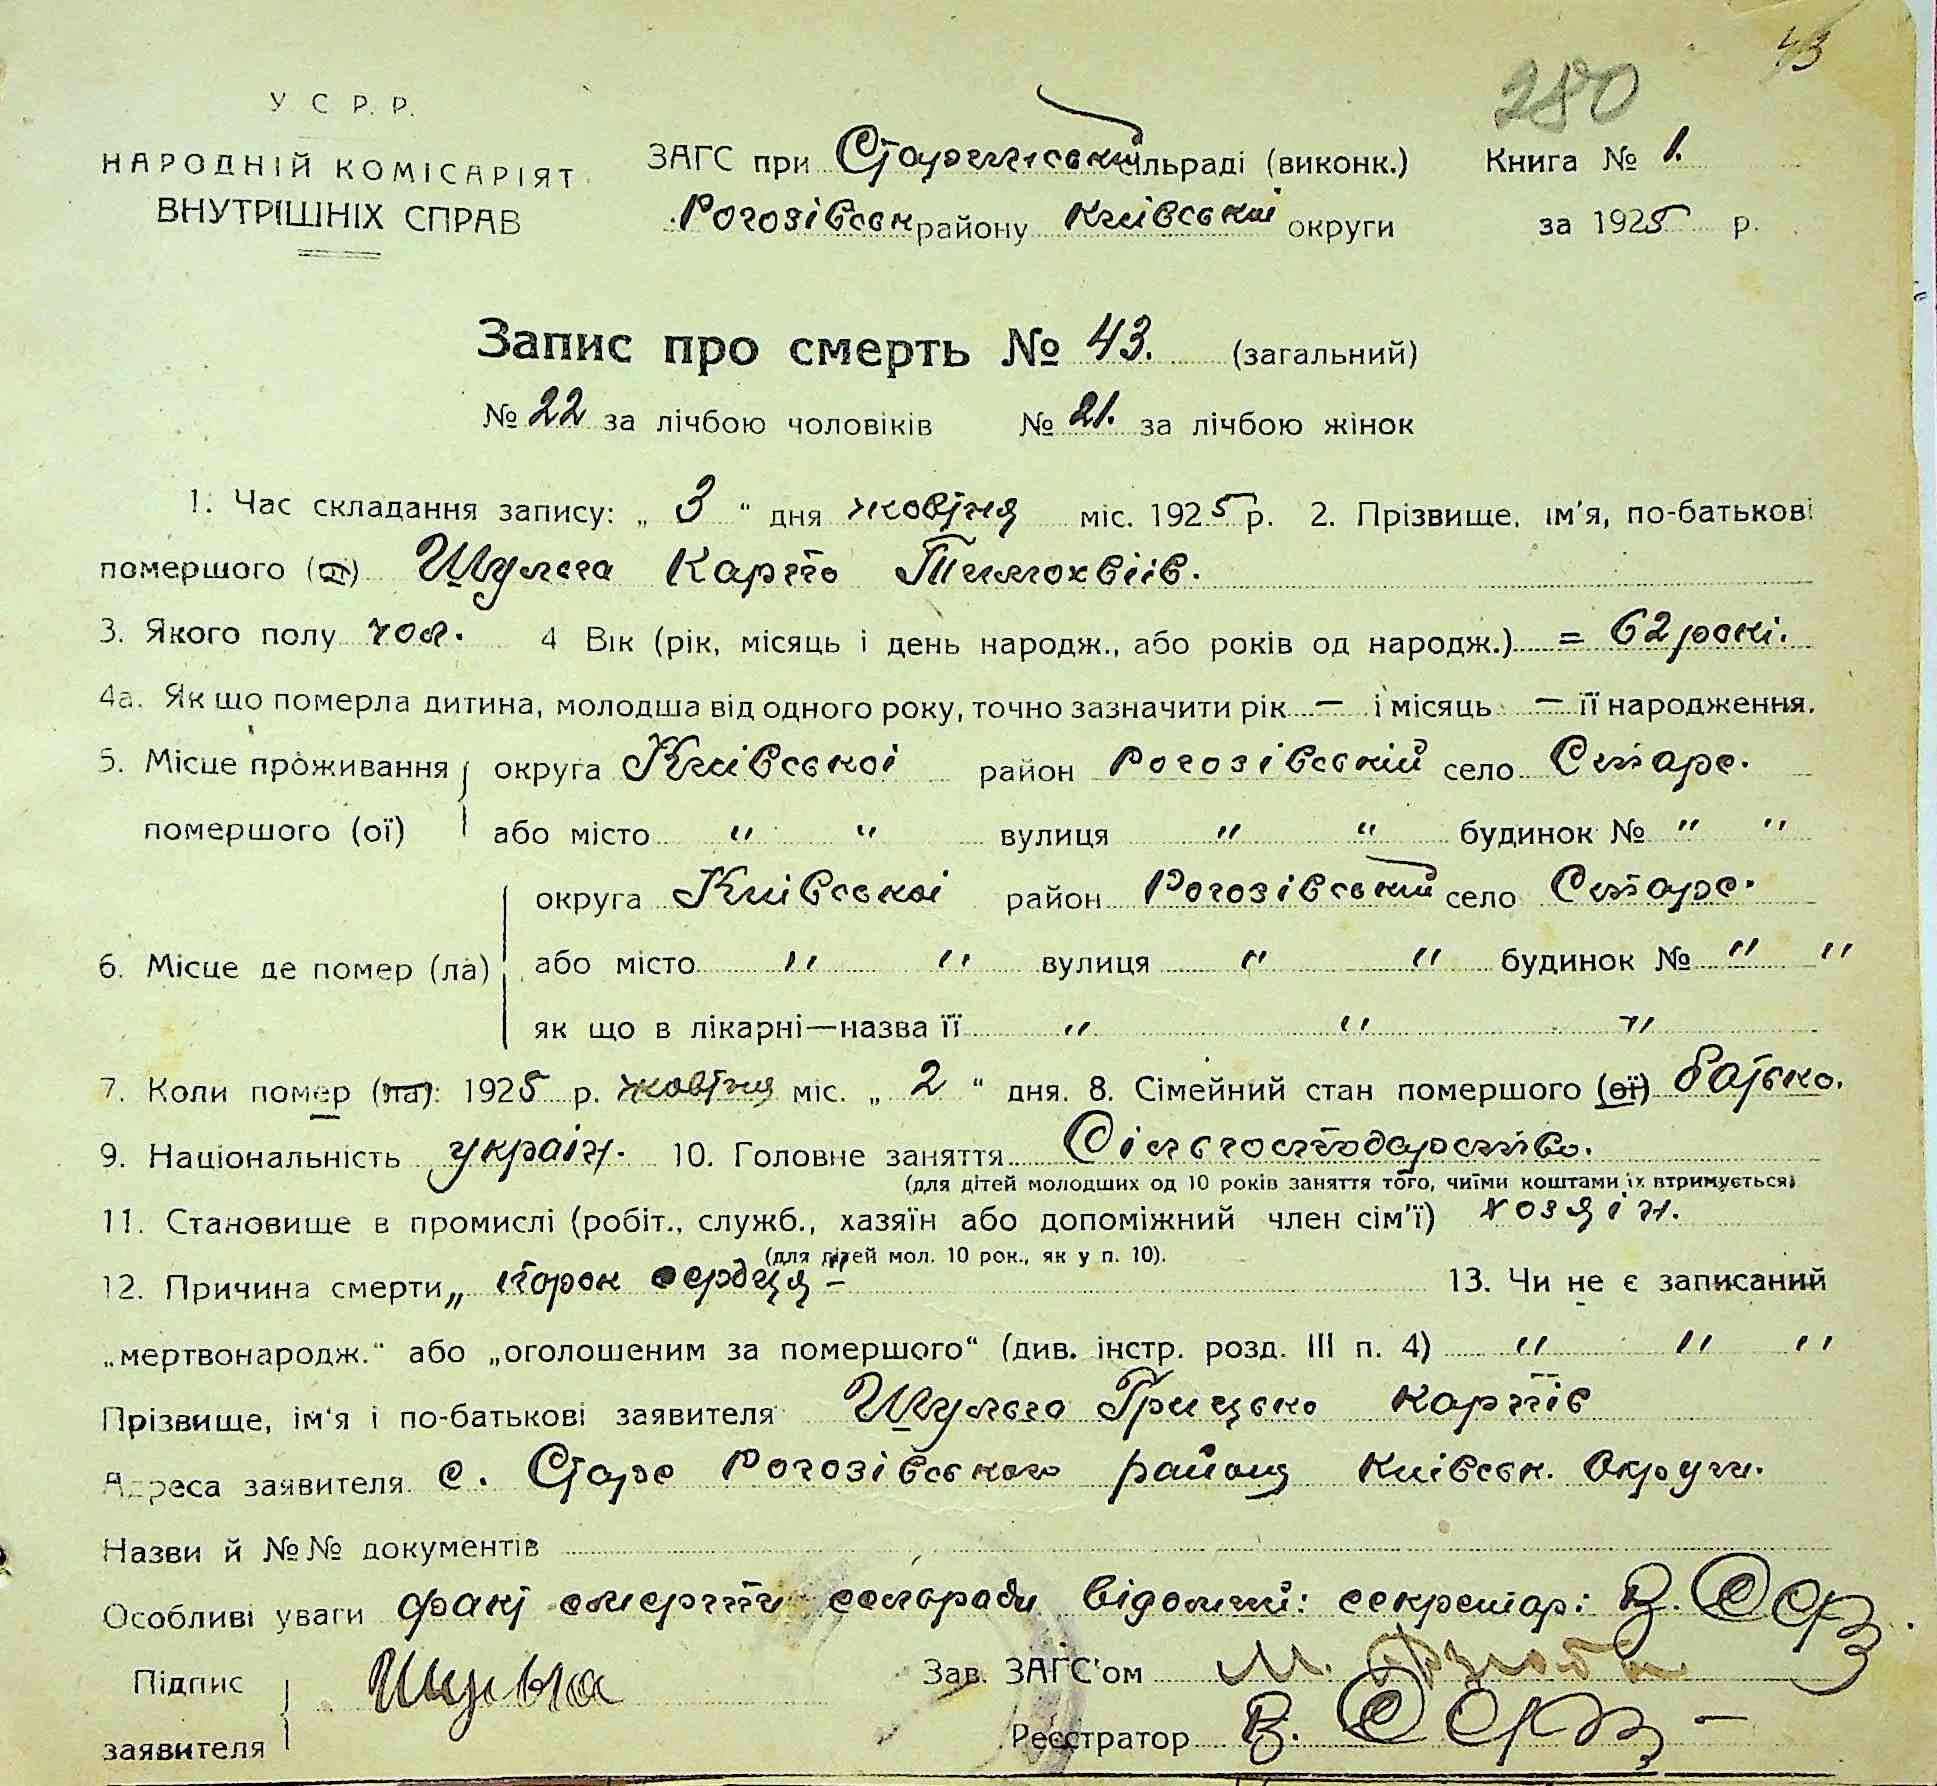 43
280
У С Р. Р.
НАРОДНІЙ КОМІСАРІЯТ
ВНУТРІШНІХ СПРАВ
ЗАГС при Старинській сільраді (виконк.) Книга № 1.
Рогозівськ району Київської округи за 1925 р.
Запис про смерть № 43. (загальний)
№ 22 за лічбою чоловіків № 21. за лічбою жінок
1. Час складання запису: „ 3 “ дня жовтня міс. 1925 р. 2. Прізвище, ім'я, по-батькові
помершого (ої) Шульга Карпо Тимохвіів.
3. Якого полу чол. 4 Вік (рік, місяць і день народж., або років од народж.) = 62 рокі.
4а. Як що померла дитина, молодша від одного року, точно зазначити рік — і місяць — її народження.
5. Місце проживання округа Київськоі район Рогозівський село Старе.
помершого (ої) або місто " " вулиця " " будинок № " "
округа Київськоі район Рогозівський село Старе.
6. Місце де помер (ла) або місто " " вулиця " " будинок № " "
як що в лікарні—назва її " " "
7. Коли помер (ла): 1925 р. жовтня міс. „ 2 “ дня. 8. Сімейний стан помершого (ої) батько.
9. Національність украін. 10. Головне заняття Сільгосподарство.
(для дітей молодших од 10 років заняття того, чиїми коштами їх втримується)
11. Становище в промислі (робіт., служб., хазяїн або допоміжний член сім'ї) хозяін.
(для дітей мол. 10 рок., як у п. 10).
12. Причина смерти „ порок сердця — 13. Чи не є записаний
„мертвонародж.“ або „оголошеним за помершого“ (див. інстр. розд. III п. 4) " " "
Прізвище, ім'я і по-батькові заявителя Шульга Грицько Карпів
Адреса заявителя с. Старе Рогозівського району Київськ. Округи.
Назви й №№ документів
Особливі уваги факт смерти сельради відомий: секретар: В.
Підпис Шульга Зав. ЗАГС'ом М.
заявителя Реєстратор В.